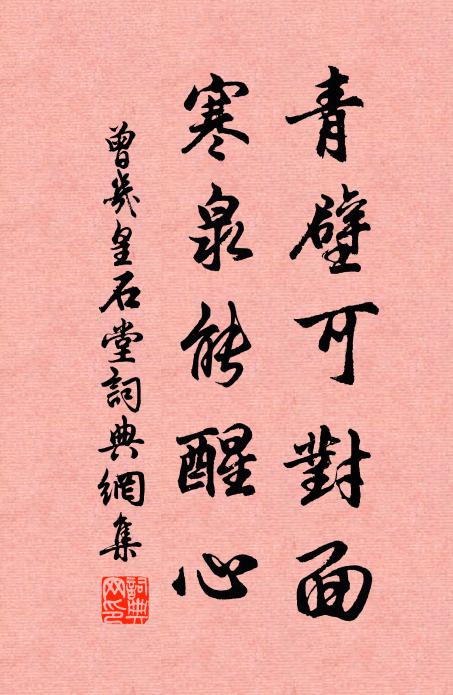 青壁可對面
寒泉能醒心
曾幾皇石堂詞典網集
詞典网印